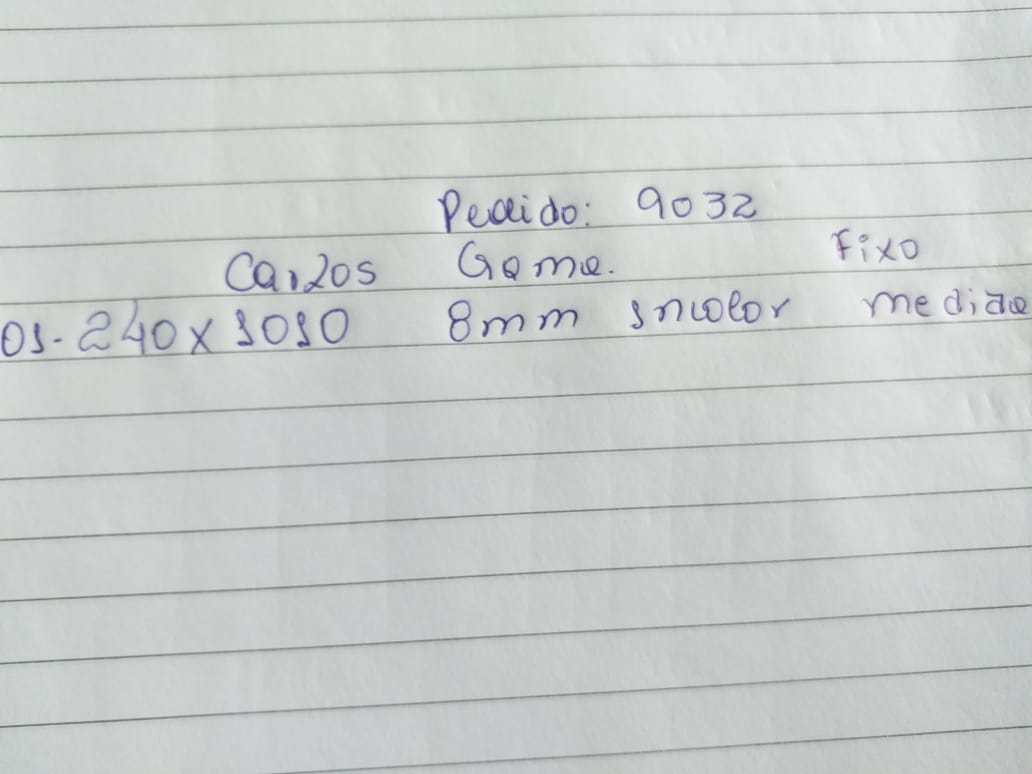 Pedido: 9032
Carlos Gama. Fixo
01-240x1010 8mm incolor medida